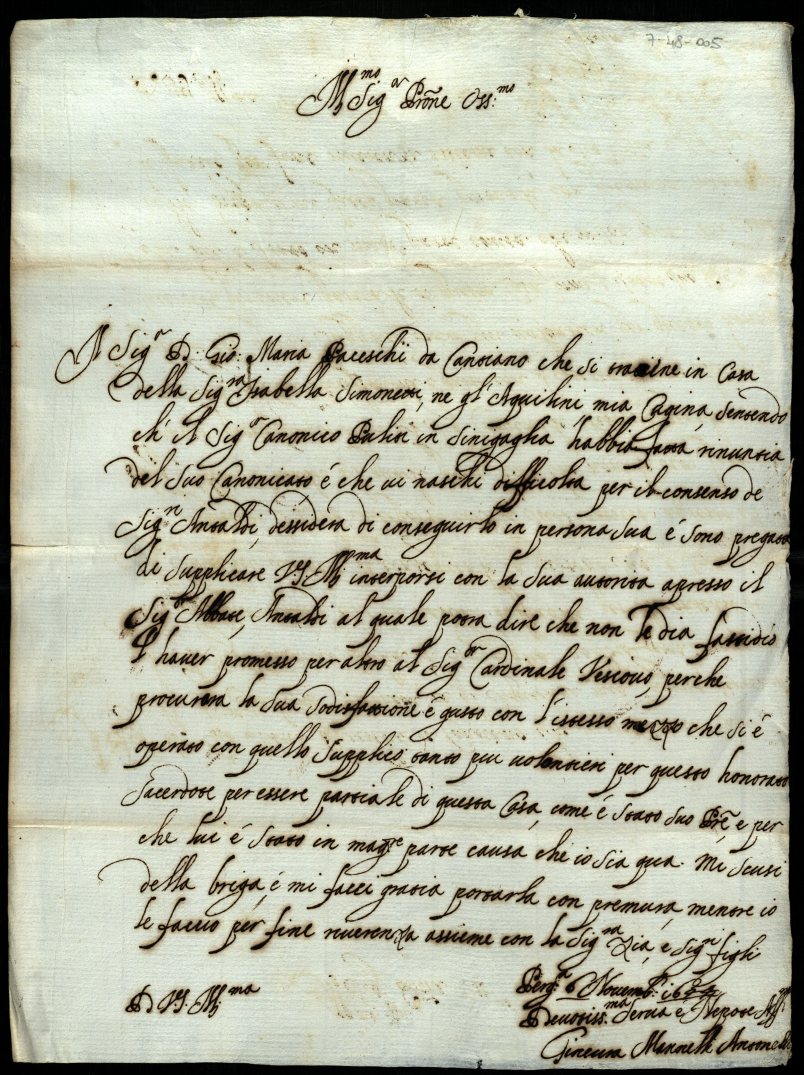 7-48-005
Ill.mo Sig.or Prone Oss.mo
Il Sig.r D. Gio: Maria Paceschi da Cantiano che si tratiene in Casa
della Sig.ra Isabella Simonetti, ne gl'Aquilini mia Cugina, sentendo
ch'il Sig.r Canonico Palisi in Sinigaglia habbia fatta rinuntia
del suo Canonicato é che vi naschi difficolta per il consenso de
Sig.ri Antaldi, dessidera di conseguirlo in persona sua é sono pregata
di supplicare V.S. Ill.ma interporsi con la sua autorita apresso il
Sig.r Abbate Antaldi al quale potra dire che non le dia fastidio
l'haver promesso per altro al Sig.or Cardinale Vescovo, perche
procurera la sua sodisfattione é gusto con l'istesso mezzo che si é
operato con quello supplico tanto piu volentieri per questo honorato
sacerdote per essere partiale di questa Casa, come é stato suo Pre e per
che lui é stato in mag.re parte causa che io sia qua. Mi scusi
della briga, é mi facci gratia portarla con premura, mentre io
le faccio per fine riverenza assieme con la Sig.ra Zia, é Sig.ri figli
D V.S. Ill.ma
Perg.a 6 Novemb.
Devotiss.ma Serva é Nepote Aff.ma
Ginevra Mannelli